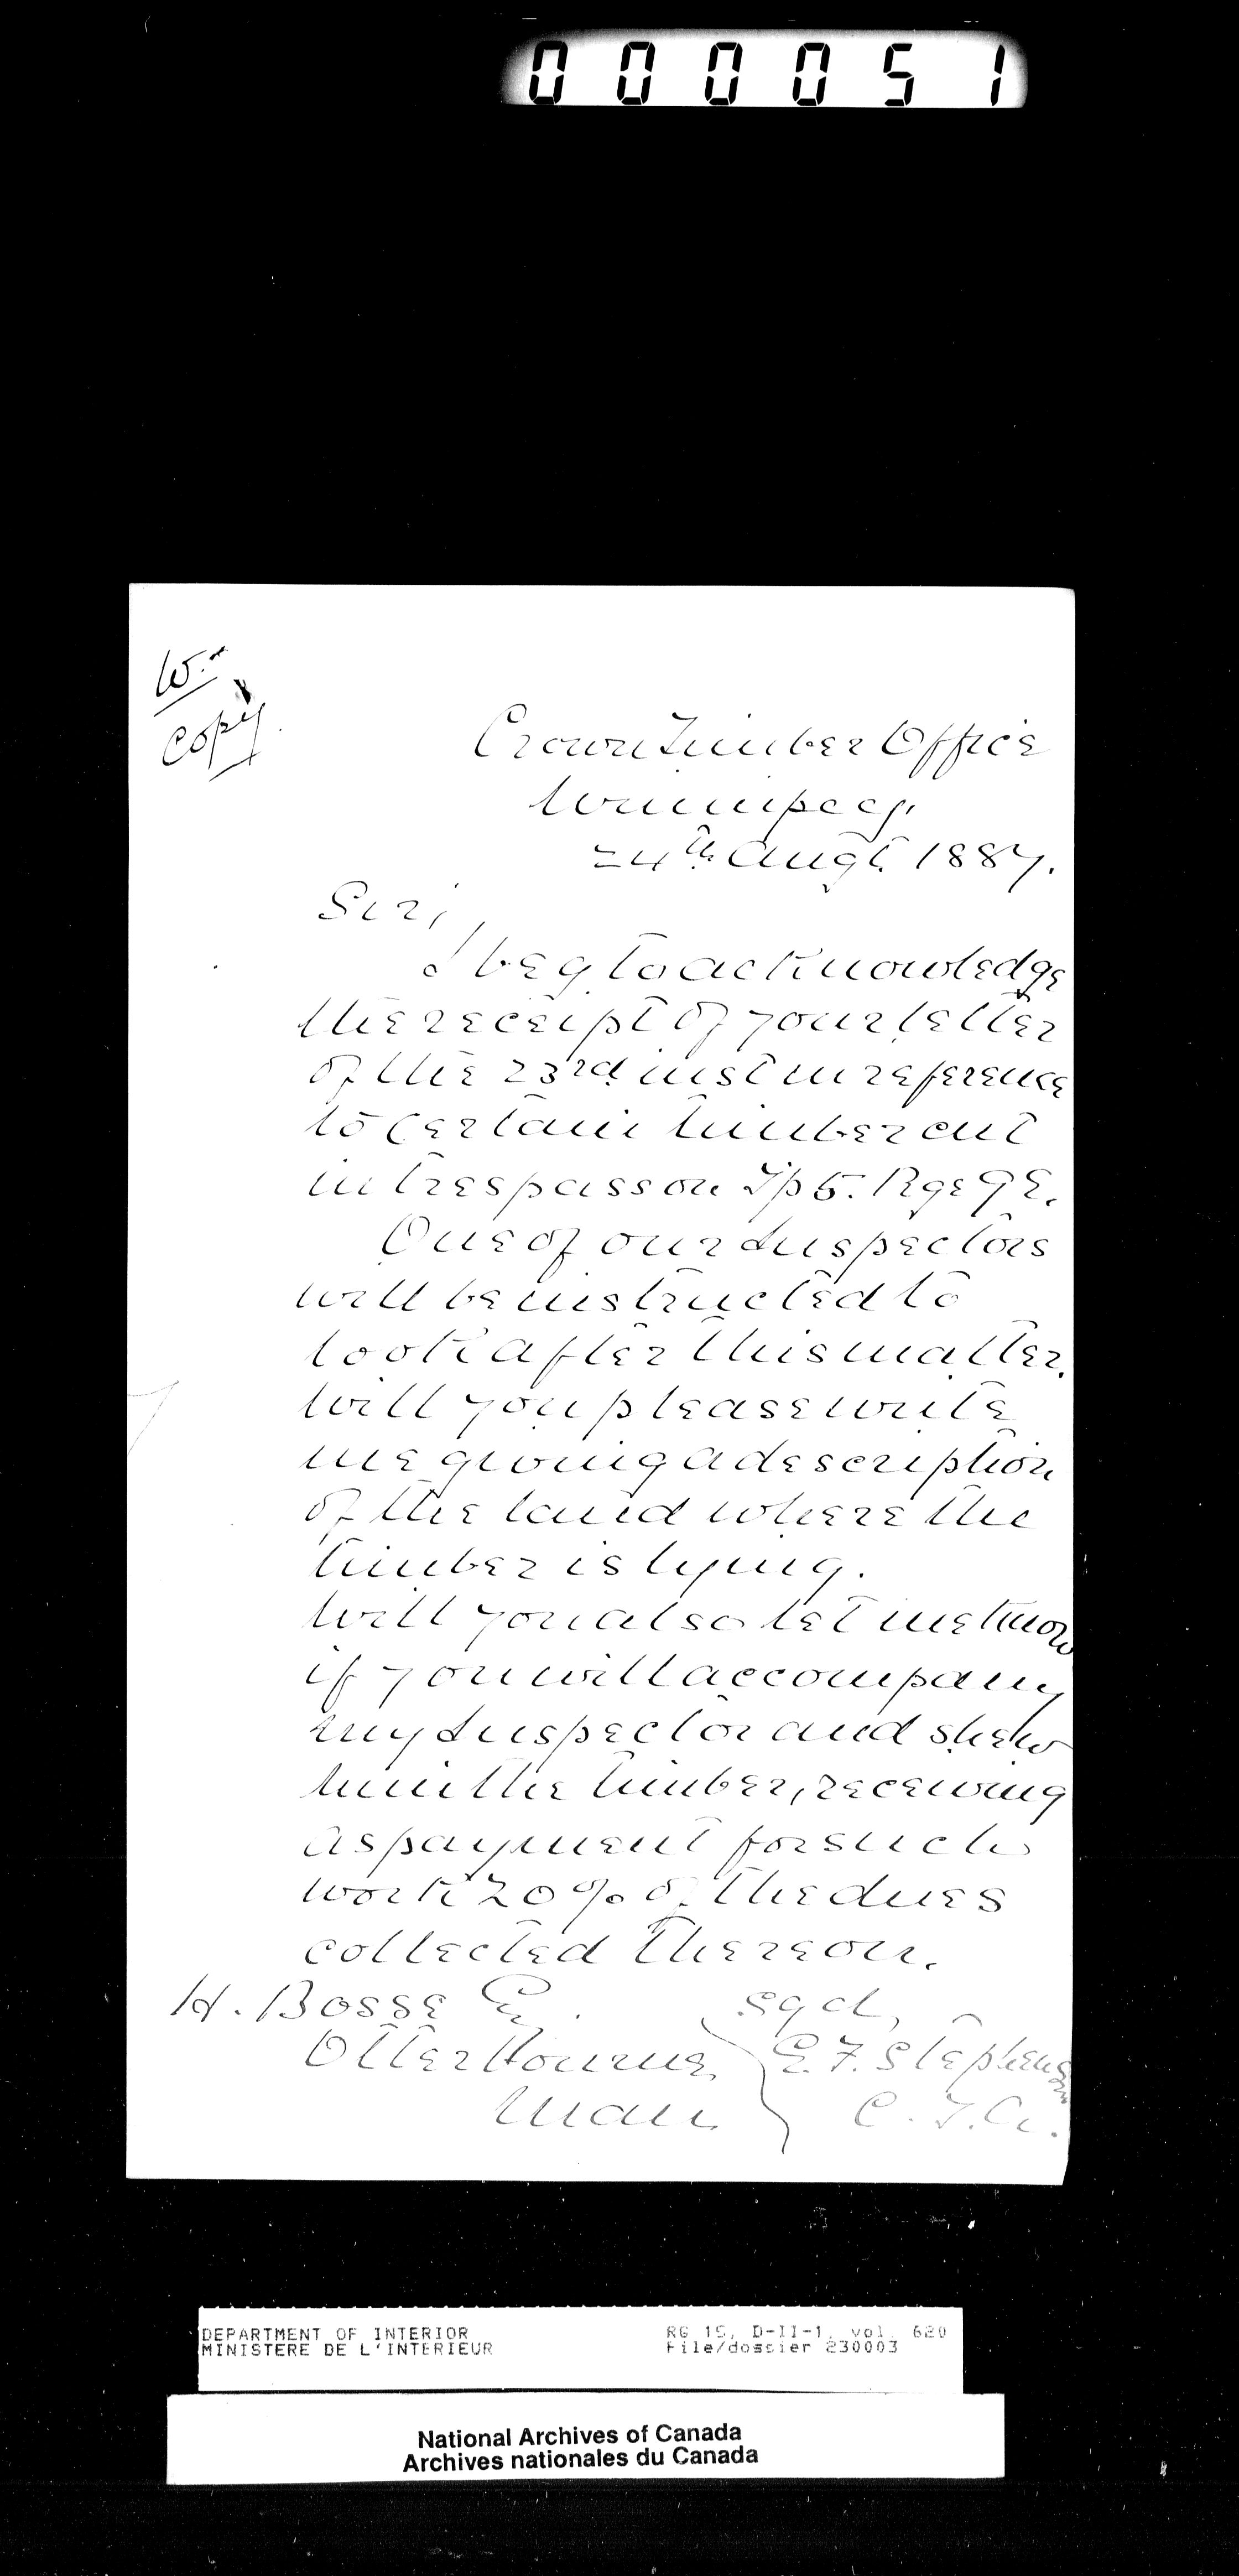 000051
W.
Copy
Crown Timber Office
Winnipeg,
24th Augt. 1887.
Sir,
I beg to acknowledge
the receipt of your letter
of the 23rd inst in reference
to certain timber cut
in trespass on Tp 5. Rge 9 E.
One of our Inspectors
will be instructed to
look after this matter.
Will you please write
me giving a description
of the land where the
timber is lying.
Will you also let me know
if you will accompany
my Inspector and shew
him the timber, receiving
as payment for such
work 20% of the dues
collected thereon.
H. Bosse Esq. sgd,
Otterbourne, E. F. Stephenson
Man. C. T. A.
DEPARTMENT OF INTERIOR RG 15, D-II-1, vol. 620
MINISTERE DE L'INTERIEUR File/dossier 230003
National Archives of Canada
Archives nationales du Canada